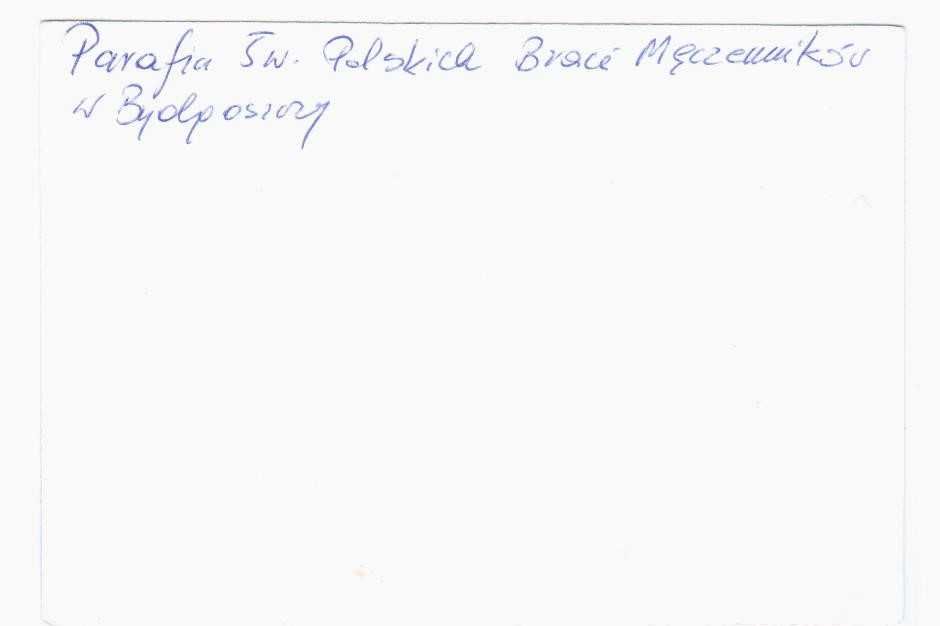 Parafia Św. Polskich Braci Męczenników
w Bydgoszczy